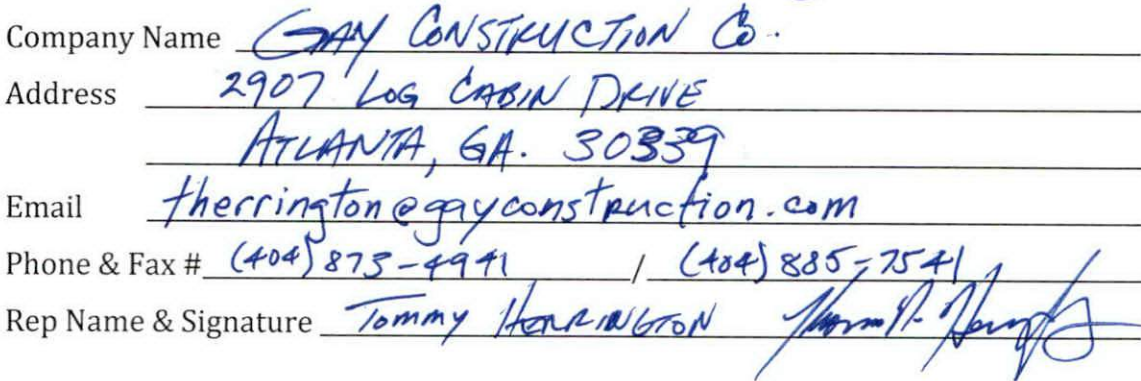 Company Name GAY CONSTRUCTION Co.
Address 2907 LOG CABIN DRIVE
ATLANTA, GA. 30339
Email therrington@gayconstruction.com
Phone & Fax # (404) 873-4941 / (404) 885-7541
Rep Name & Signature Tommy HERRINGTON